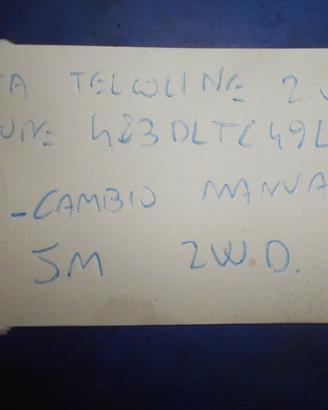 TA TELCOLINE 2.
UNE 483DLTC49L
-CAMBIO MANUA
5M 2WD.